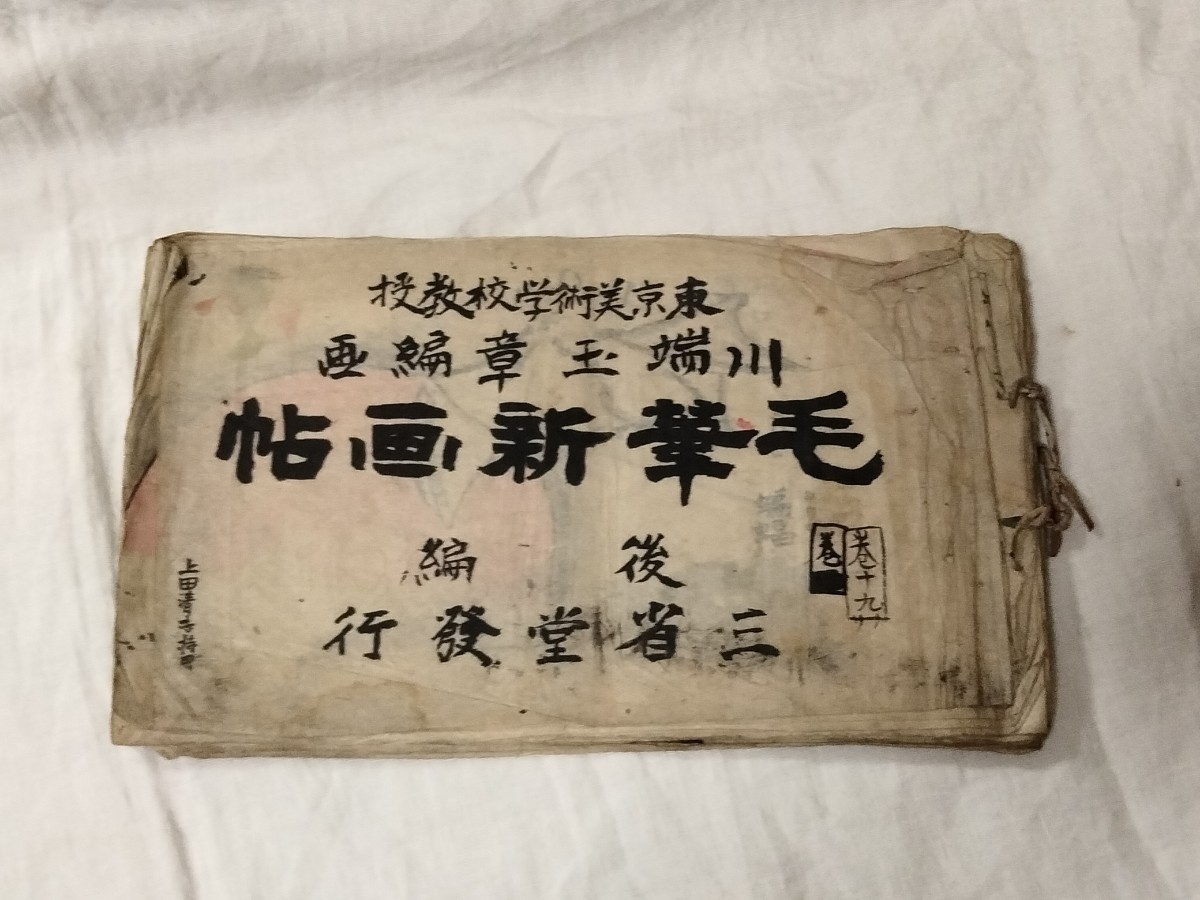 東京美術学校教授
川端玉章編画
毛筆新画帖
後編
三省堂發行
巻十九
巻一